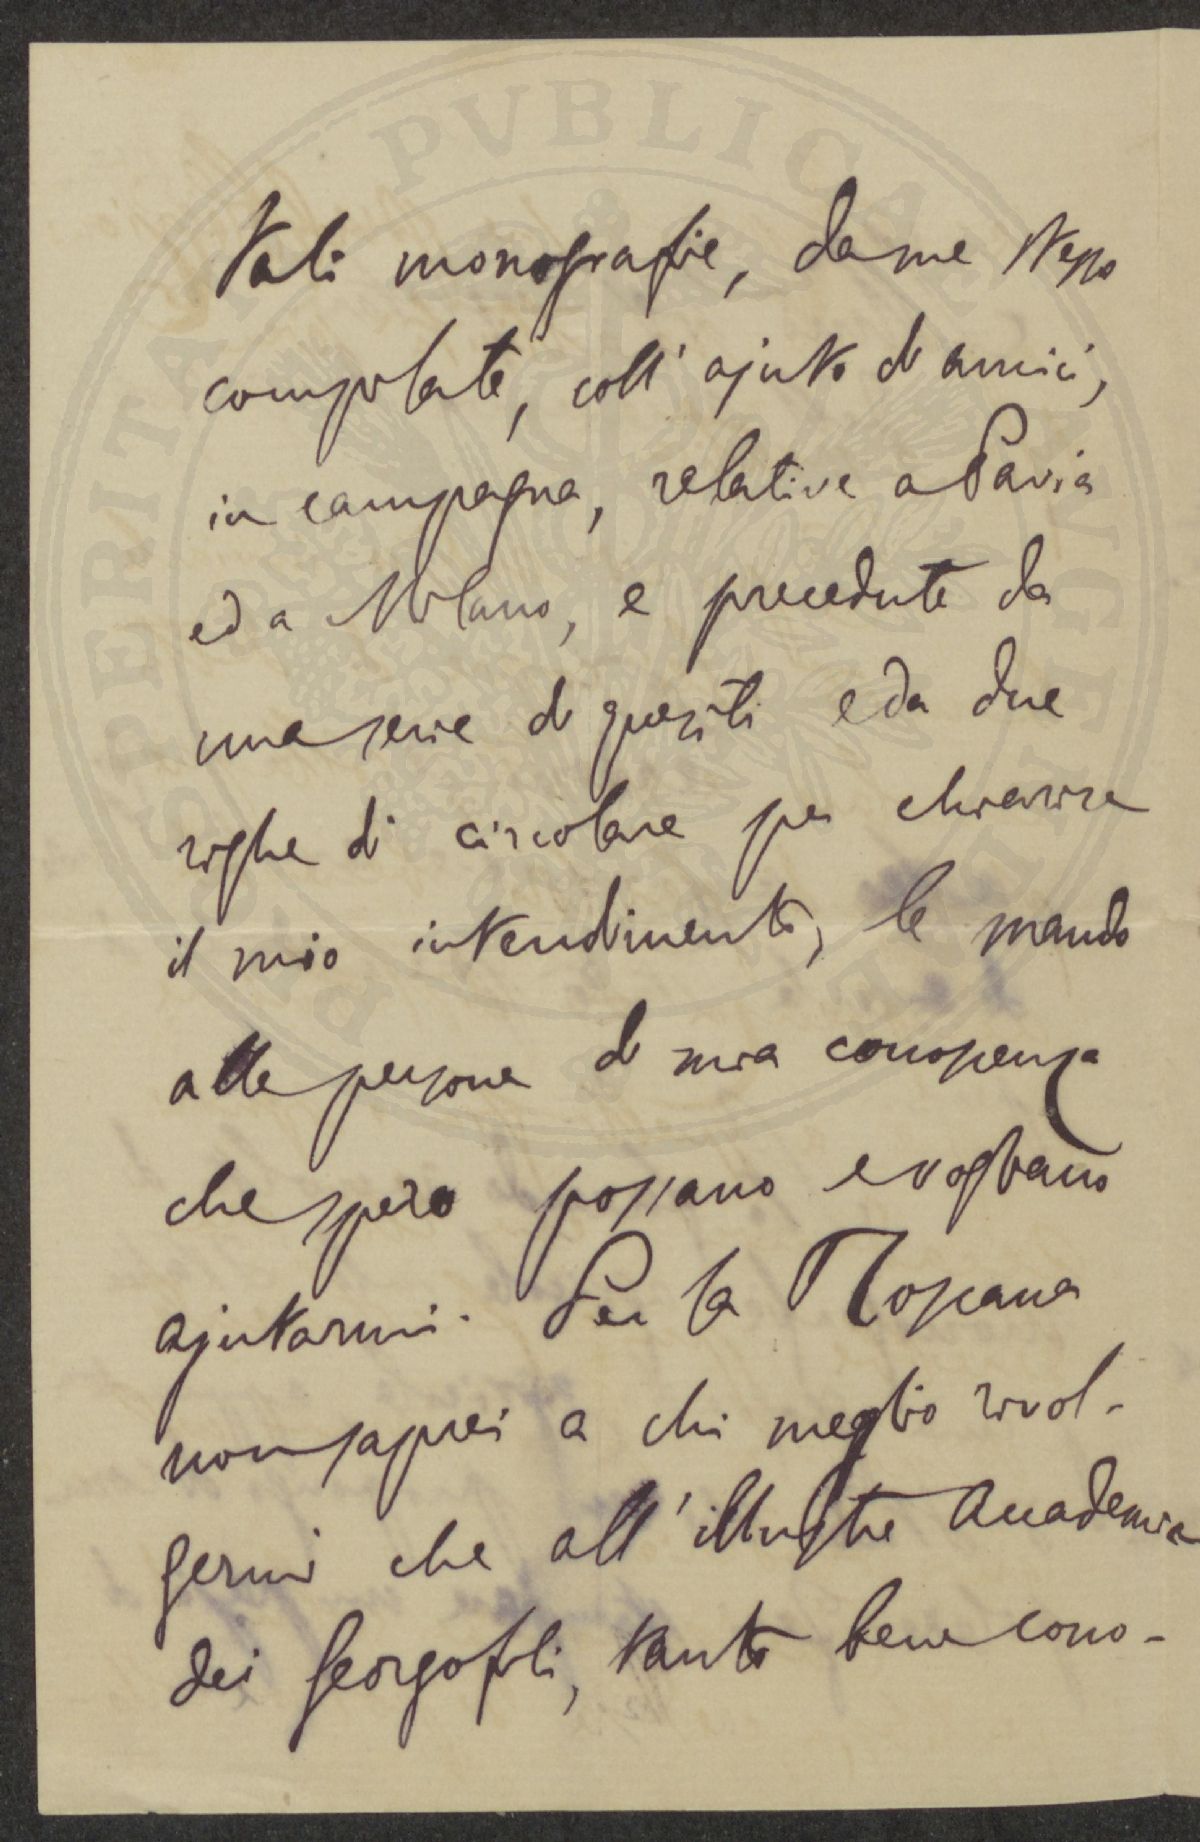 Tali monografie, da me stesso
compilate, coll'ajuto di amici,
in campagna, relative a Pavia
ed a Milano, e precedute da
una serie di quesiti e da due
righe di circolare per chiarire
il mio intendimento, le mando
alle persone di mia conoscenza
che spero possano e vogliano
ajutarmi. Per la Toscana
non saprei a chi meglio rivol-
germi che all'illustre Accademia
dei Georgofili, tanto bene cono-